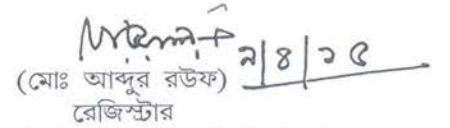 ২|৪|১৫
(মোঃ আব্দুর রউফ)
রেজিস্টার